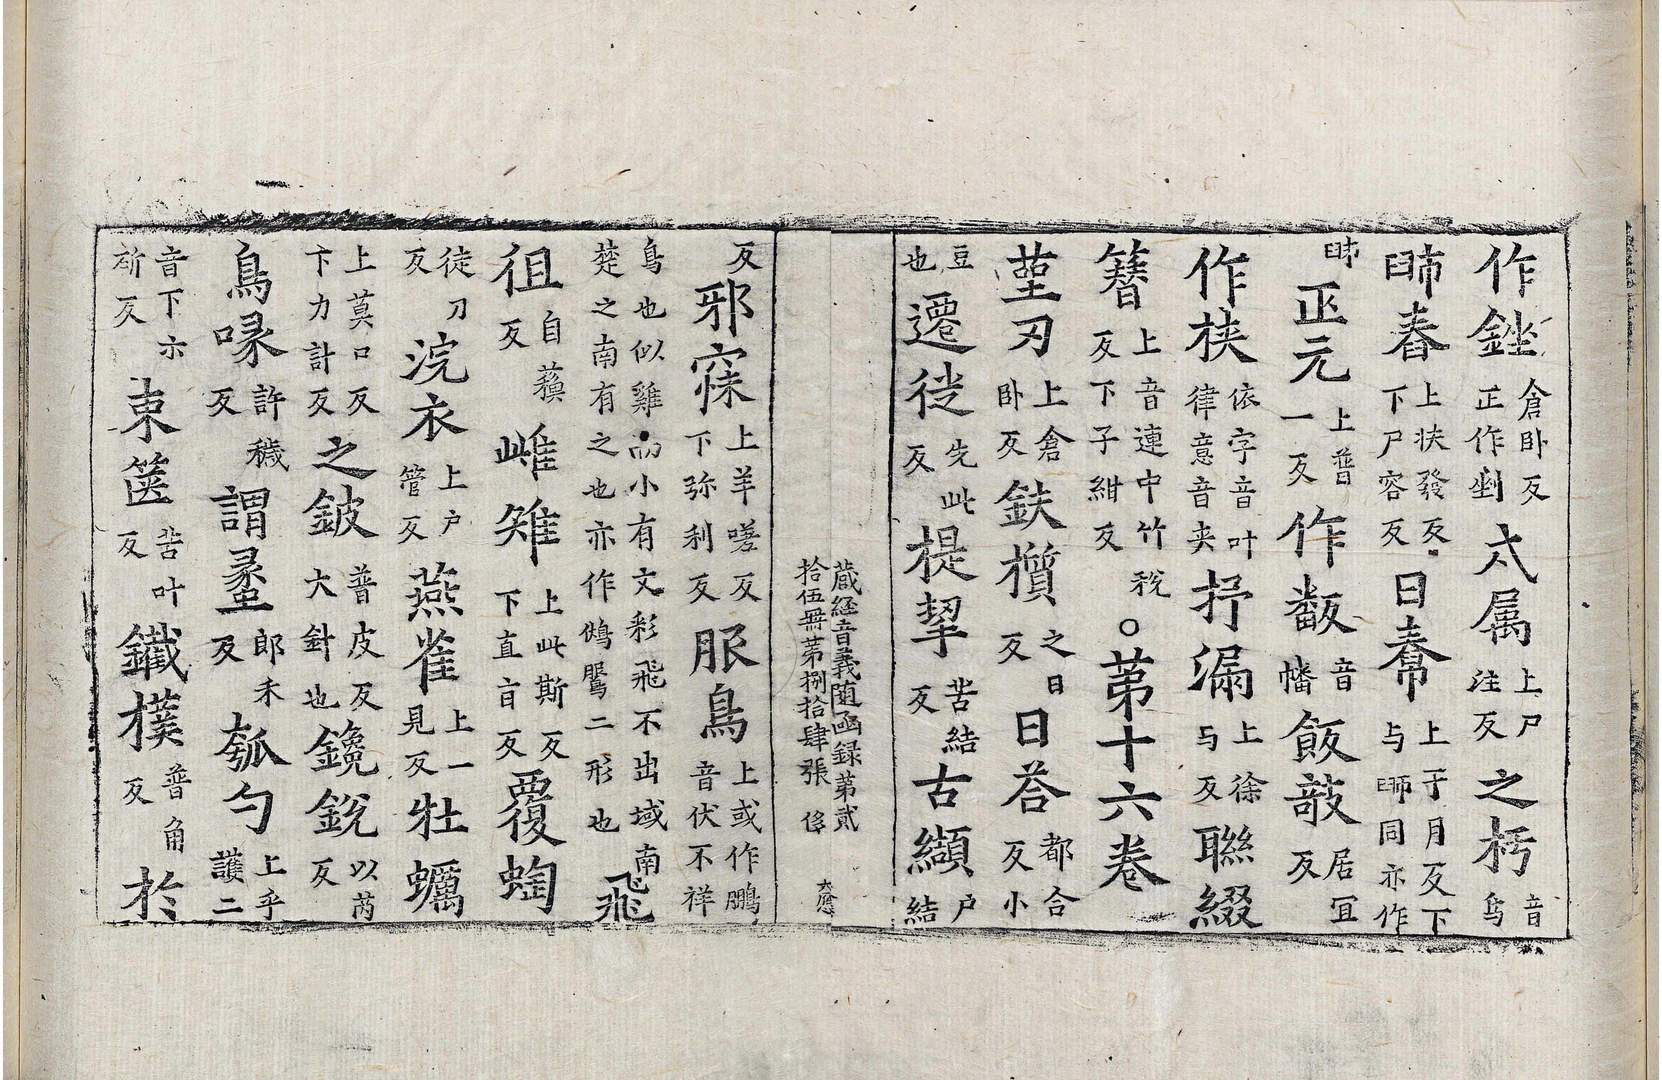 作銼倉卧反正作剉太属上尸注反之杇音烏
䏢舂上扶發反下尸容反日㡓上于月反下与䏢同亦作
䏢正元上普一反作䬳音幡飯敱居宜反
作梜依字音叶律意音夹抒漏上徐与反聯綴
簪上音連中竹稅反下子紺反○苐十六卷
莝刃上倉卧反鈇櫍之日反日荅都合反小
豆也遷徙先此反㮛挈苦結反古纈户結
藏経音義随函録苐貳
拾伍冊苐捌拾肆張 侈
大應
反邪寱上羊嗟反下弥利反服鳥上或作鵩音伏不祥
鳥也似雞而小有文彩飛不出域南楚之南有之也亦作鵂鶹二形也飛
徂自蘓反雌雉上此斯反下直盲反覆蜪
徒刀反浣衣上户管反燕雀上一見反牡蠣
上莫口反下力計反之鈹普皮反大針也鑱銳以芮反
鳥喙許穢反謂蠡郎禾反瓠勺上乎護二
音下亦斫反束篋苦叶反鐵樸普角反於